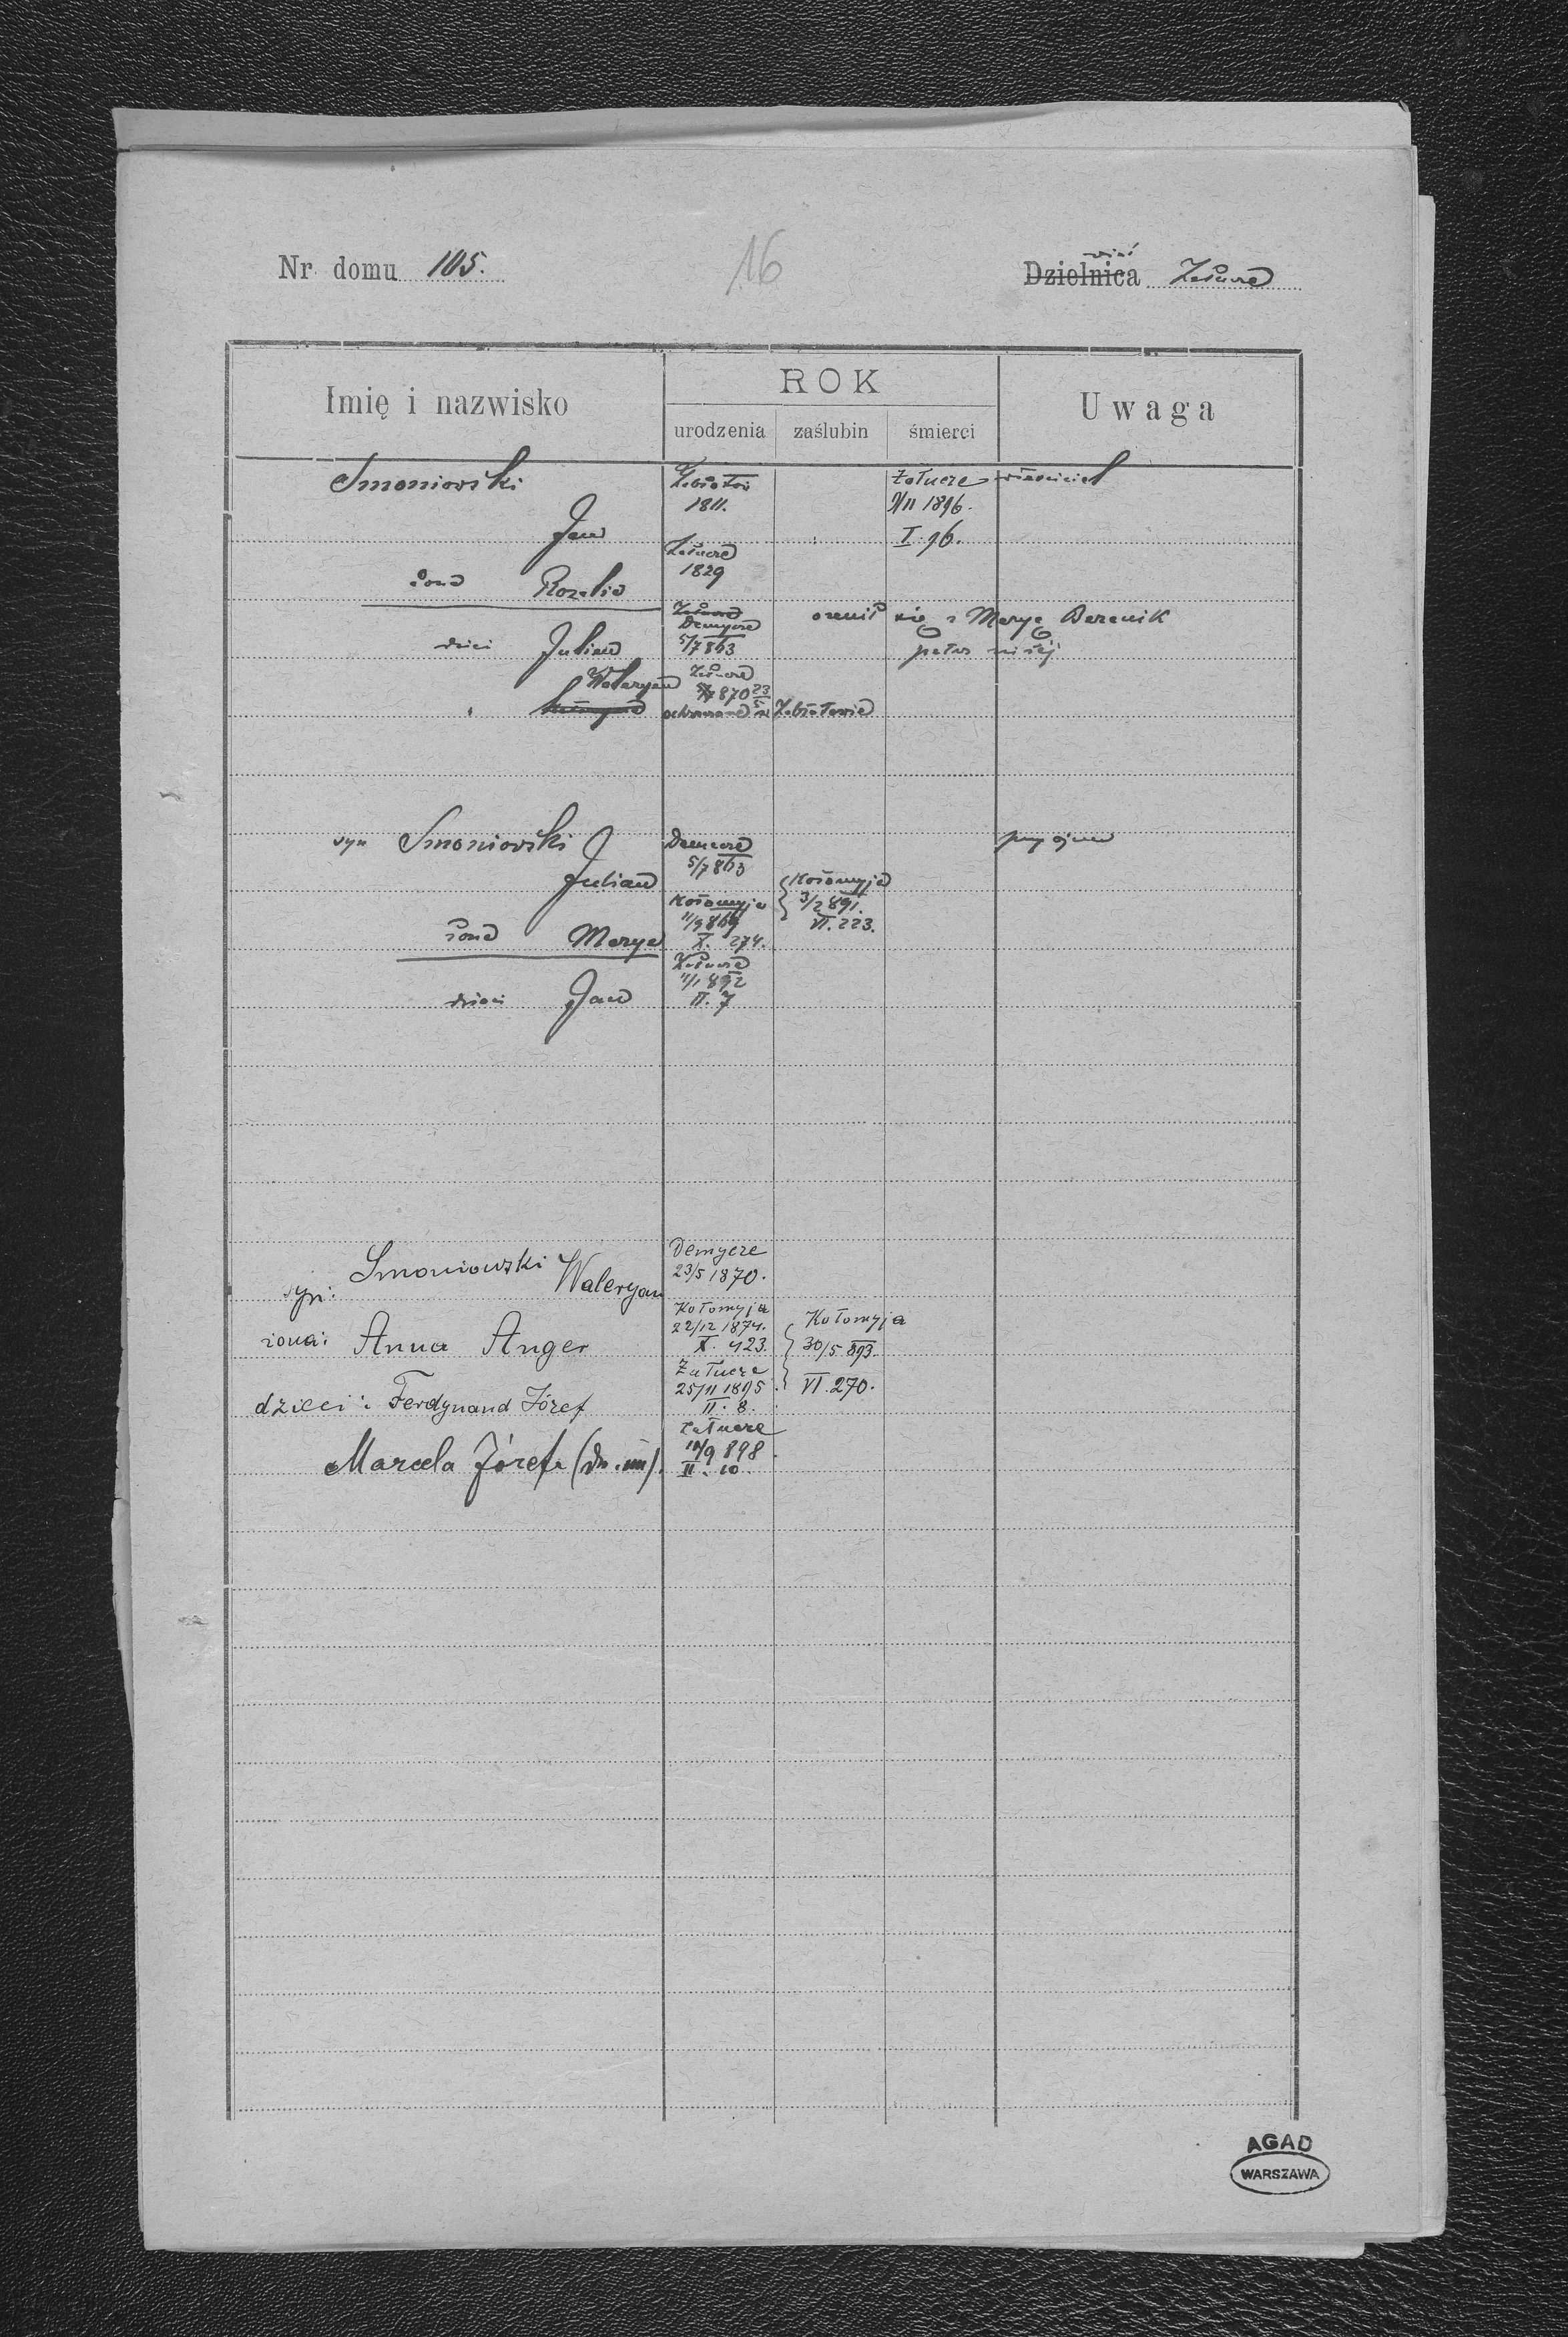 Nr domu 105.
16
wieś
Dzielnica Załucze
Imię i nazwisko
ROK
urodzenia zaślubin śmierci
Uwaga
Smoniowski
Jan
Zabłotów
1811.
Załucze
1896.
I. 96.
właściciel
żona Rozalia
Załucze
1829
dzieci Julian
Załucze
Demycze
5/7 863
ożenił się z Maryą
patrz niżej
Waleryan
Załucze
870 23/5
ochrzczone w Zabłotowie
syn Smoniowski
Julian
Demycze
5/7 863
przy ojcu
żona Marya
Kołomyja
11/9 869
X. 274.
Kołomyja
3/2 891.
VI. 223.
dzieci Jan
Załucze
11/1 892
II. 7
syn: Smoniowski Waleryan
Demycze
23/5 1870.
żona: Anna Anger
Kołomyja
22/12 1874.
X. 423.
Kołomyja
30/5 893.
VI. 270.
dzieci: Ferdynand Józef
Załucze
25/11 1895.
II. 8.
Marcela Józefa (dw. im).
Załucze
898
II. 10.
AGAD
WARSZAWA